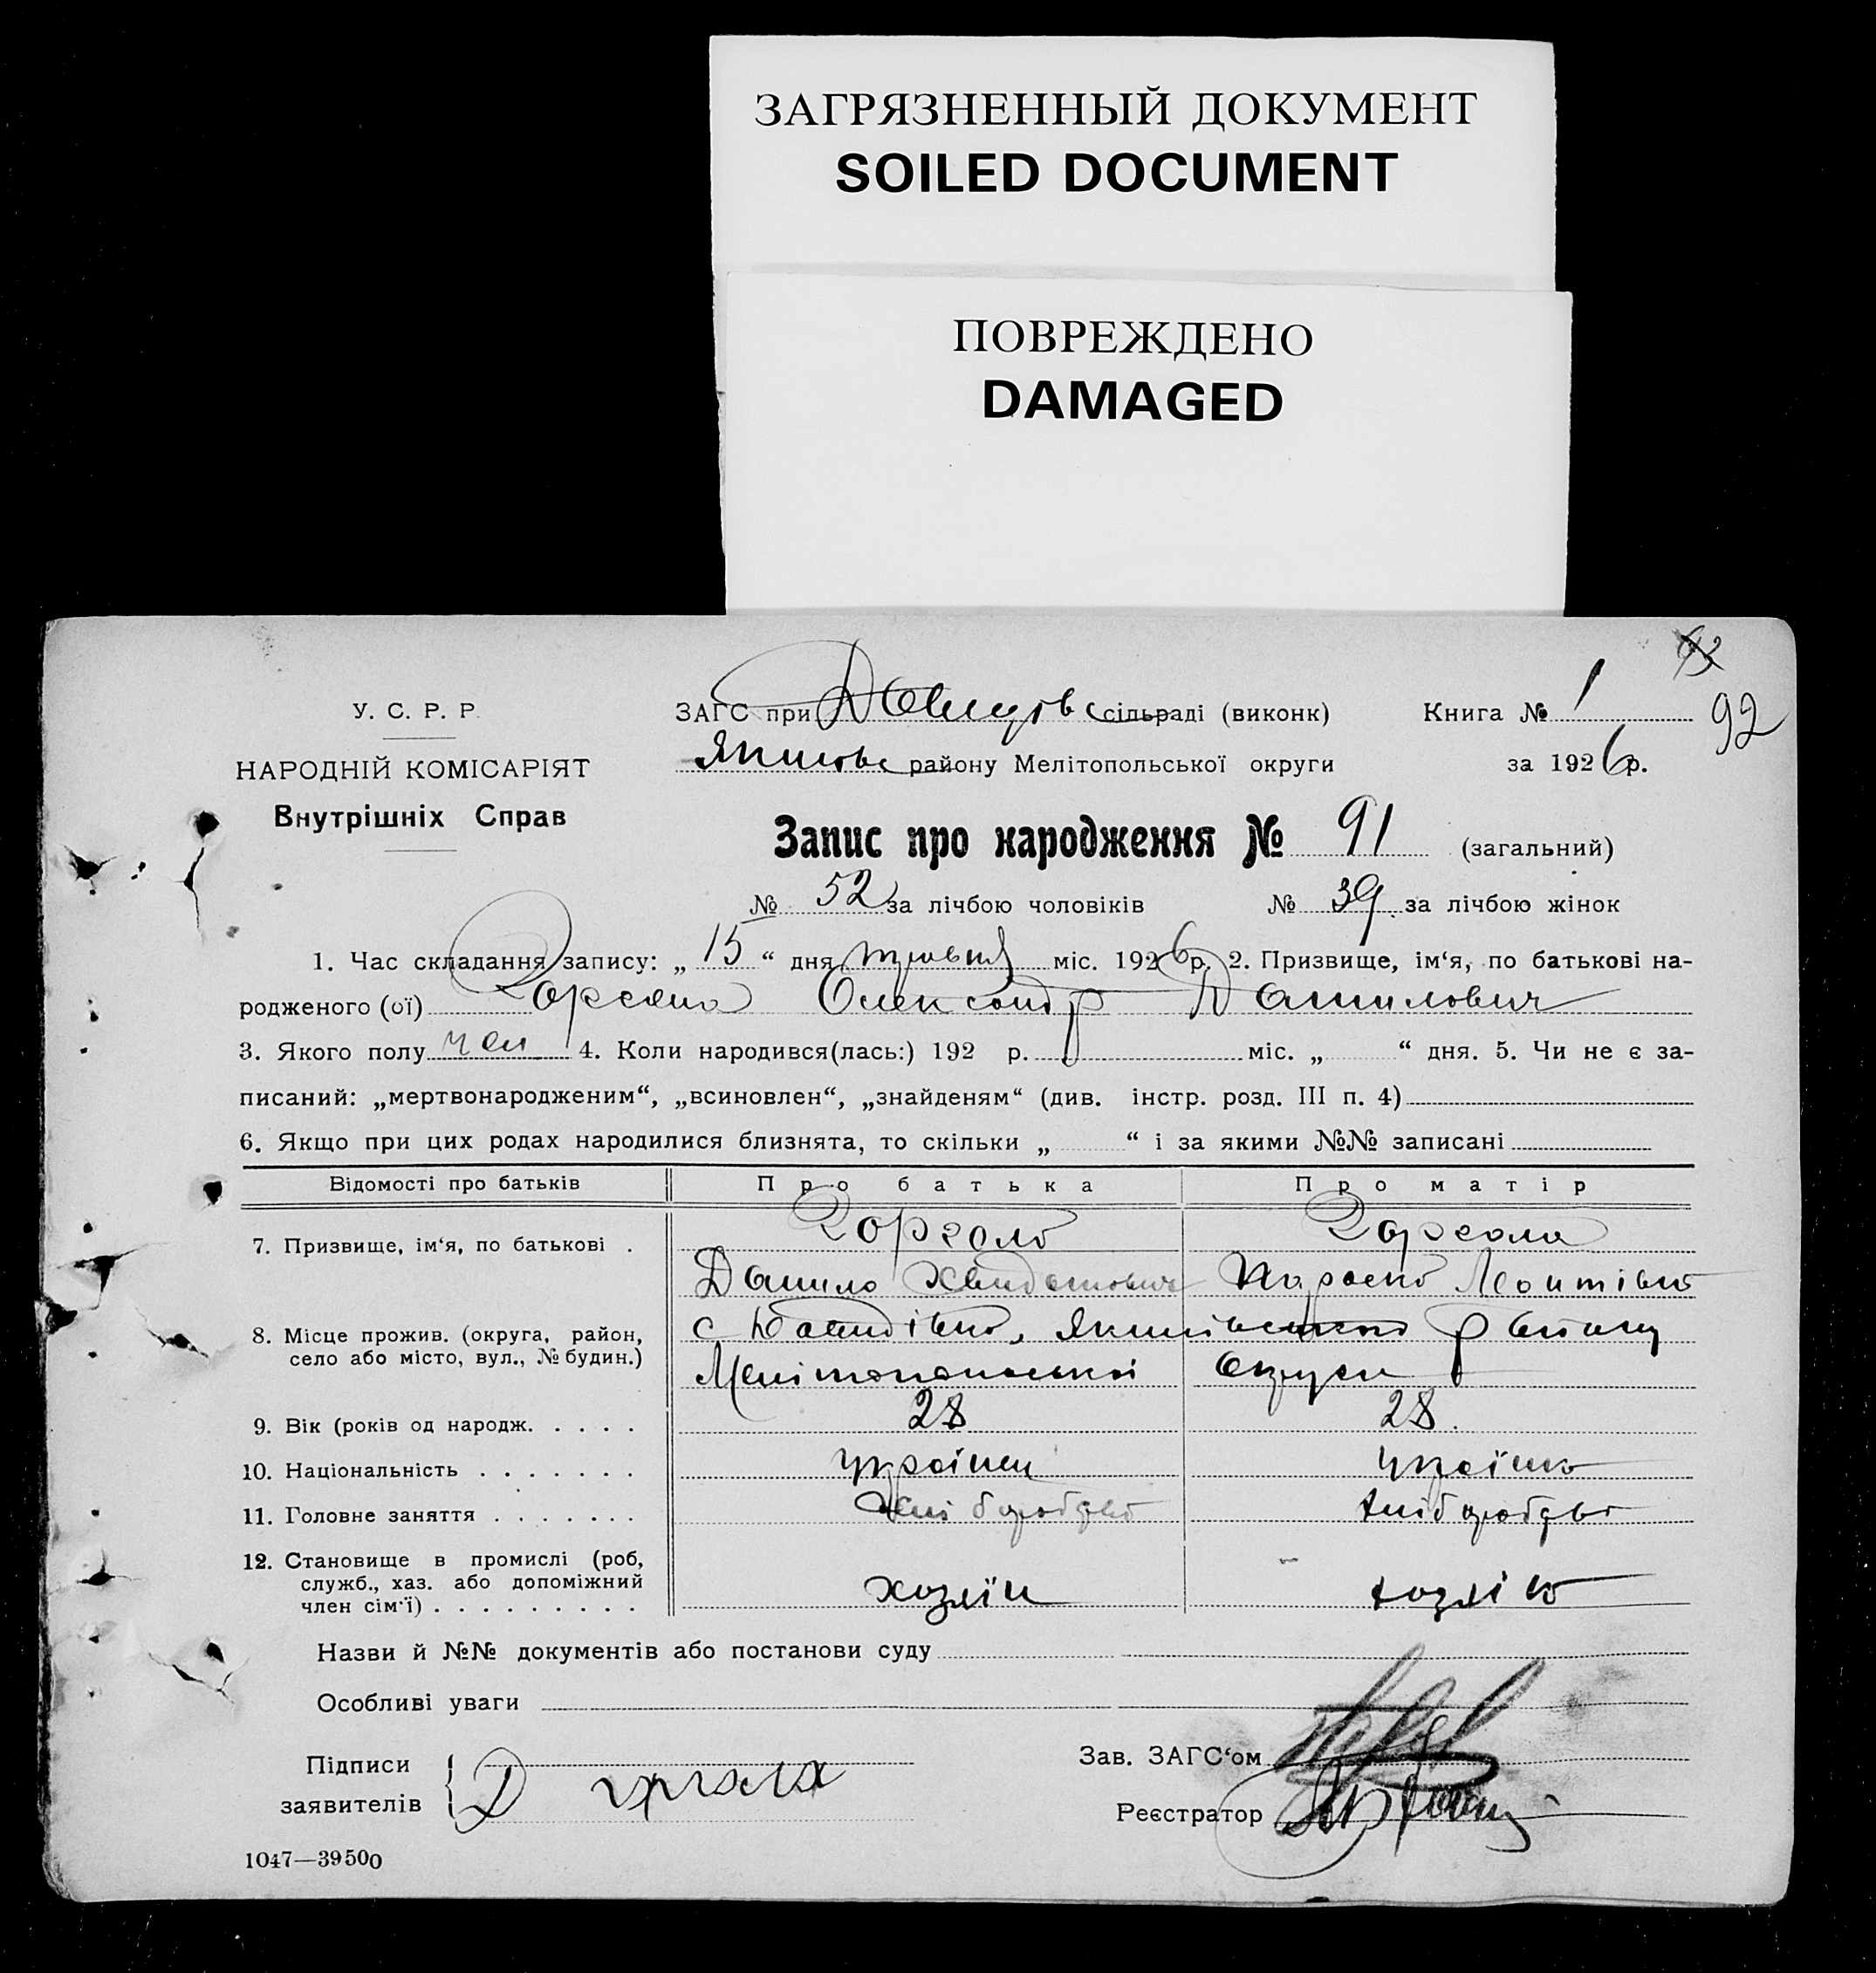 ЗАГРЯЗНЕННЫЙ ДОКУМЕНТ
SOILED DOCUMENT
ПОВРЕЖДЕНО
DAMAGED
92
У. С. Р. Р.
НАРОДНІЙ КОМІСАРІЯТ
Внутрішніх Справ
ЗАГС при сільраді (виконк) Книга № 1
Якимовс району Мелітопольської округи за 1926 р.
Запис про народження № 91 (загальний)
№ 52 за лічбою чоловіків № 39 за лічбою жінок
1. Час складання запису: „ 15 “ дня травня міс. 1926 р. 2. Призвище, ім‘я, по батькові на-
родженого (ої) Олександр Данилович
3. Якого полу чол 4. Коли народився(лась:) 192 р. міс. „ “ дня. 5. Чи не є за-
писаний: „мертвонародженим“, „всиновлен“, „знайденям“ (див. інстр. розд. III п. 4)
6. Якщо при цих родах народилися близнята, то скільки „ “ і за якими №№ записані
Відомості про батьків Про батька Про матір
7. Призвище, ім‘я, по батькові .
Данило
8. Місце прожив. (округа, район,
село або місто, вул., № будин.)
с. Давидівка, району
Мелітопольської округи
9. Вік (років од народж. . . . . 28 28.
10. Національність . . . . . . . українец українка
11. Головне заняття . . . . . . . хліборобство хліборобство
12. Становище в промислі (роб,
служб., хаз. або допоміжний
член сім‘ї) . . . . . . . . . хозяїн
Назви й №№ документів або постанови суду
Особливі уваги
Підписи
заявителів
Д
Зав. ЗАГС‘ом
Реєстратор
1047—39500